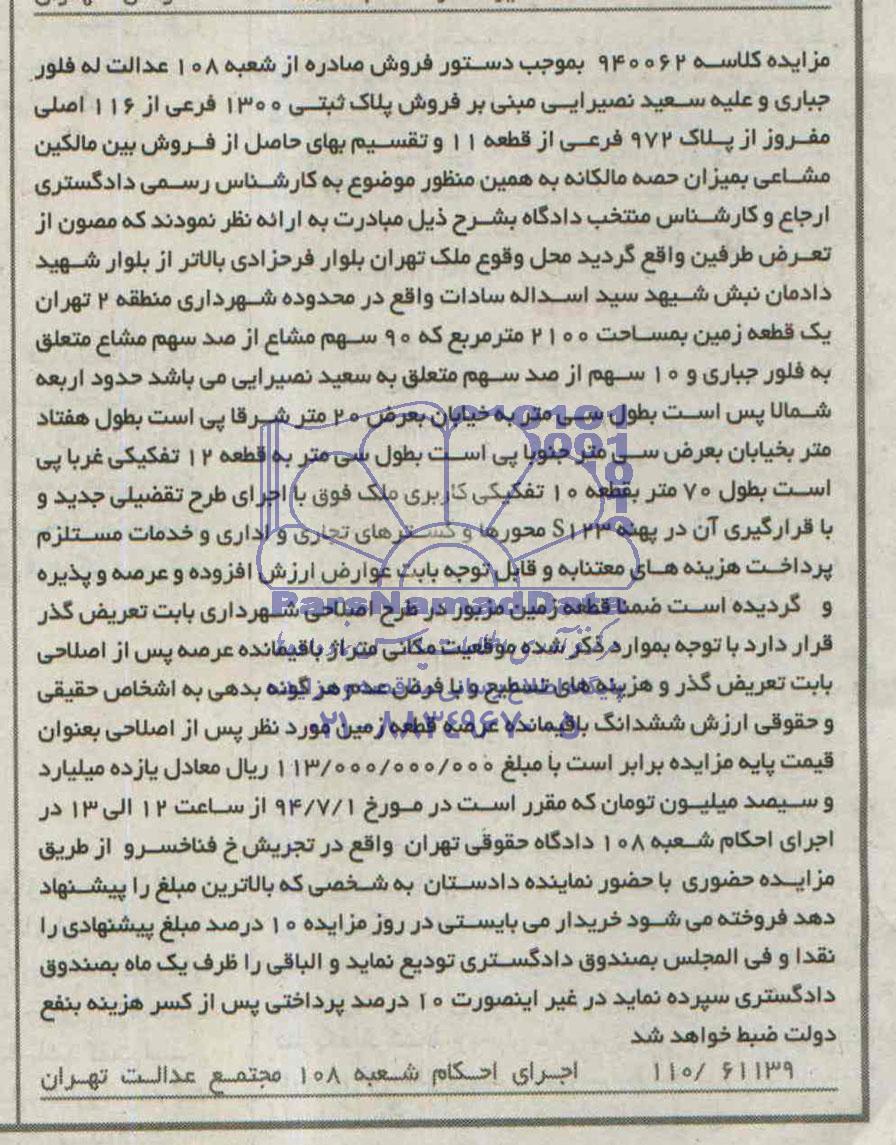 مزایده کلاسه ۹۴۰۰۶۲ بموجب دستور فروش صادره از شعبه ۱۰۸ عدالت له فلور
جباری و علیه سعید نصیرایی مبنی بر فروش پلاک ثبتی ۱۳۰۰ فرعی از ۱۱۶ اصلی
مفروز از پلاک ۹۷۲ فرعی از قطعه ۱۱ و تقسیم بهای حاصل از فروش بین مالکین
مشاعی بمیزان حصه مالکانه به همین منظور موضوع به کارشناس رسمی دادگستری
ارجاع و کارشناس منتخب دادگاه بشرح ذیل مبادرت به ارائه نظر نمودند که مصون از
تعرض طرفین واقع گردید محل وقوع ملک تهران بلوار فرحزادی بالاتر از بلوار شهید
دادمان نبش شیهد سید اسداله سادات واقع در محدوده شهرداری منطقه ۲ تهران
یک قطعه زمین بمساحت ۲۱۰۰ مترمربع که ۹۰ سهم مشاع از صد سهم مشاع متعلق
به فلور جباری و ۱۰ سهم از صد سهم متعلق به سعید نصیرایی می باشد حدود اربعه
شمالا پس است بطول سی متر به خیابان بعرض ۲۰ متر شرقا پی است بطول هفتاد
متر بخیابان بعرض سی متر جنوبا پی است بطول سی متر به قطعه ۱۲ تفکیکی غربا پی
است بطول ۷۰ متر بقطعه ۱۰ تفکیکی کاربری ملک فوق با اجرای طرح تفضیلی جدید و
با قرارگیری آن در پهنه S۱۲۳ محورها و گسترهای تجاری و اداری و خدمات مستلزم
پرداخت هزینه های معتنابه و قابل توجه بابت عوارض ارزش افزوده و عرصه و پذیره
و گردیده است ضمنا قطعه زمین مزبور در طرح اصلاحی شهرداری بابت تعریض گذر
قرار دارد با توجه بموارد ذکر شده موقعیت مکانی متراژ باقیمانده عرصه پس از اصلاحی
بابت تعریض گذر و هزینه های تسطیح و با فرض عدم هر گونه بدهی به اشخاص حقیقی
و حقوقی ارزش ششدانگ باقیمانده عرصه قطعه زمین مورد نظر پس از اصلاحی بعنوان
قیمت پایه مزایده برابر است با مبلغ ۱۱۳/۰۰۰/۰۰۰/۰۰۰ ریال معادل یازده میلیارد
و سیصد میلیون تومان که مقرر است در مورخ ۹۴/۷/۱ از ساعت ۱۲ الی ۱۳ در
اجرای احکام شعبه ۱۰۸ دادگاه حقوقی تهران واقع در تجریش خ فناخسرو از طریق
مزایده حضوری با حضور نماینده دادستان به شخصی که بالاترین مبلغ را پیشنهاد
دهد فروخته می شود خریدار می بایستی در روز مزایده ۱۰ درصد مبلغ پیشنهادی را
نقدا و فی المجلس بصندوق دادگستری تودیع نماید و الباقی را ظرف یک ماه بصندوق
دادگستری سپرده نماید در غیر اینصورت ۱۰ درصد پرداختی پس از کسر هزینه بنفع
دولت ضبط خواهد شد
۱۱۰/ ۶۱۱۳۹ اجرای احکام شعبه ۱۰۸ مجتمع عدالت تهران
ParsNamadData
۰۲۱-۸۸۳۴۹۶۷۰-۵